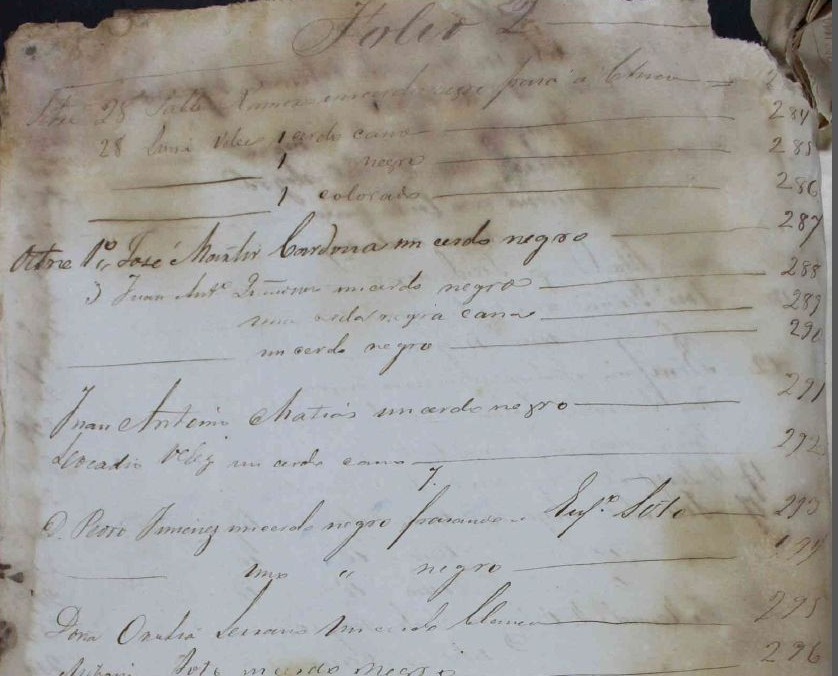 Folio 2
28 Pablo negro para
28 Luis Velez 1 cerdo cano 284
1 negro 285
1 colorado 286
Octne 1º José Martir Cardona un cerdo negro 287
3 Juan Antº un cerdo negro 288
una cerda negra cana 289
un cerdo negro 290
Juan Antonio Matias un cerdo negro 291
Leocadio Velez un cerdo cano 292
7.
D. Pedro Jimenez un cerdo negro Eufº Soto 293
uno " negro 294
Doña Serrano un cerdo blanco 295
Soto un cerdo negro 296